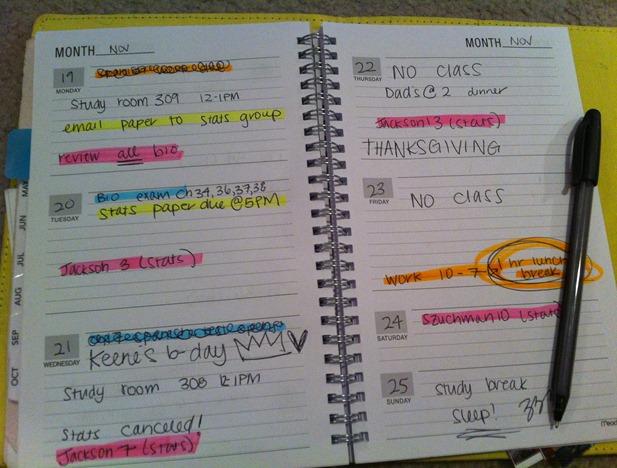 MONTH NOV
19
MONDAY
Study room 309 12-1PM
email paper to stats group
review all bio
20
TUESDAY
Bio exam ch 34, 36, 37, 38
Stats paper due @5PM
Jackson 3 (stats)
21
WEDNESDAY
Keene's b-day
Study room 308 12-1PM
Stats canceled!
Jackson 7 (stats)
MAY
JUN
JUL
AUG
SEP
OCT
MONTH NOV
22
THURSDAY
NO CLASS
Dad's @ 2 dinner
Jackson 13 (stats)
THANKSGIVING
23
FRIDAY
NO CLASS
Work 10-7 1 hr lunch
break
24
SATURDAY
Szuchman 10 (stats)
25
SUNDAY
study break
sleep!